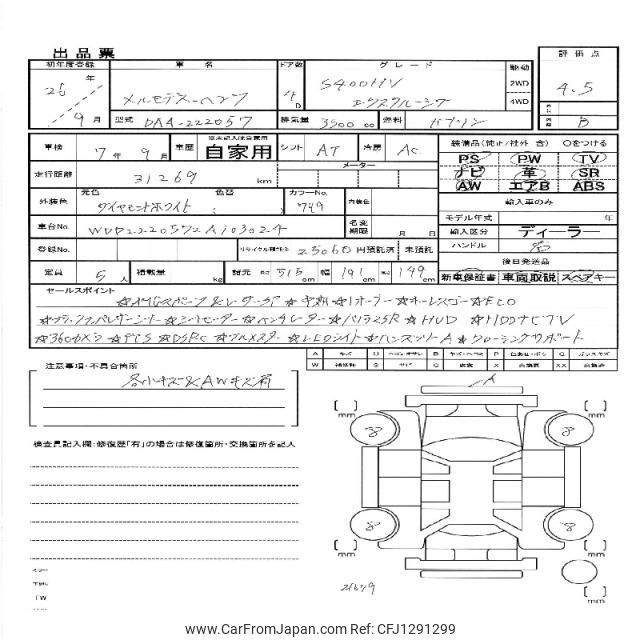 出品票
初年度登録 車名 ドア数 グレード 駆動 評価点
26年 メルセデス-ベンツ 4D S400HV 2WD 4.5
9月 エクスクルーシブ 4WD
型式 DAA-222057 排気量 3500cc 燃料 ガソリン B
車検 7年9月 車歴 自家用 シフト AT 冷房 AC
走行距離 31269km メーター
外装色 元色 ダイヤモンドホワイト 色替 カラーNo. 799 内装色
車台No. WDD2220572A103024 名変期限 月 日
登録No. リサイクル預託金 25060円預託済 未預託
定員 5人 積載量 kg 諸元 長さ 515cm 幅 191cm 高さ 149cm
装備品(純正/社外 含) 〇をつける
PS PW TV
ナビ 革 SR
AW エアB ABS
輸入車のみ
モデル年式 年
輸入区分 ディーラー
ハンドル 右
後日発送品
新車保証書 車両取説 スペアキー
セールスポイント
☆AMGスポーツ&レザーSP ☆1オーナー ☆キーレスゴー ☆ECO
☆シートヒーター ☆ベンチレーター ☆パノラマSR ☆HUD ☆HDDナビTV
☆360カメラ ☆DSRC ☆ブルメスター ☆LEDライト ☆ハンズフリーA ☆クロージングサポート
A キズ U B P
W S サビ C 腐食 X XX
注意事項・不具合箇所
各小キズ&AWキズ有
検査員記入欄:修復歴「有」の場合は修復箇所・交換箇所を記入
A
[ ]mm 8 8 [ ]mm
[ ]mm 8 8 [ ]mm
[ ]mm
www.CarFromJapan.com Ref:CFJ1291299